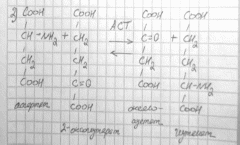 2) COOH COOH COOH COOH
АСТ
CH-NH₂ + CH₂ C=O + CH₂
CH₂ CH₂ CH₂ CH₂
COOH C=O COOH CH-NH₂
аспартат COOH оксало- COOH
ацетат глутамат
2-оксоглутарат